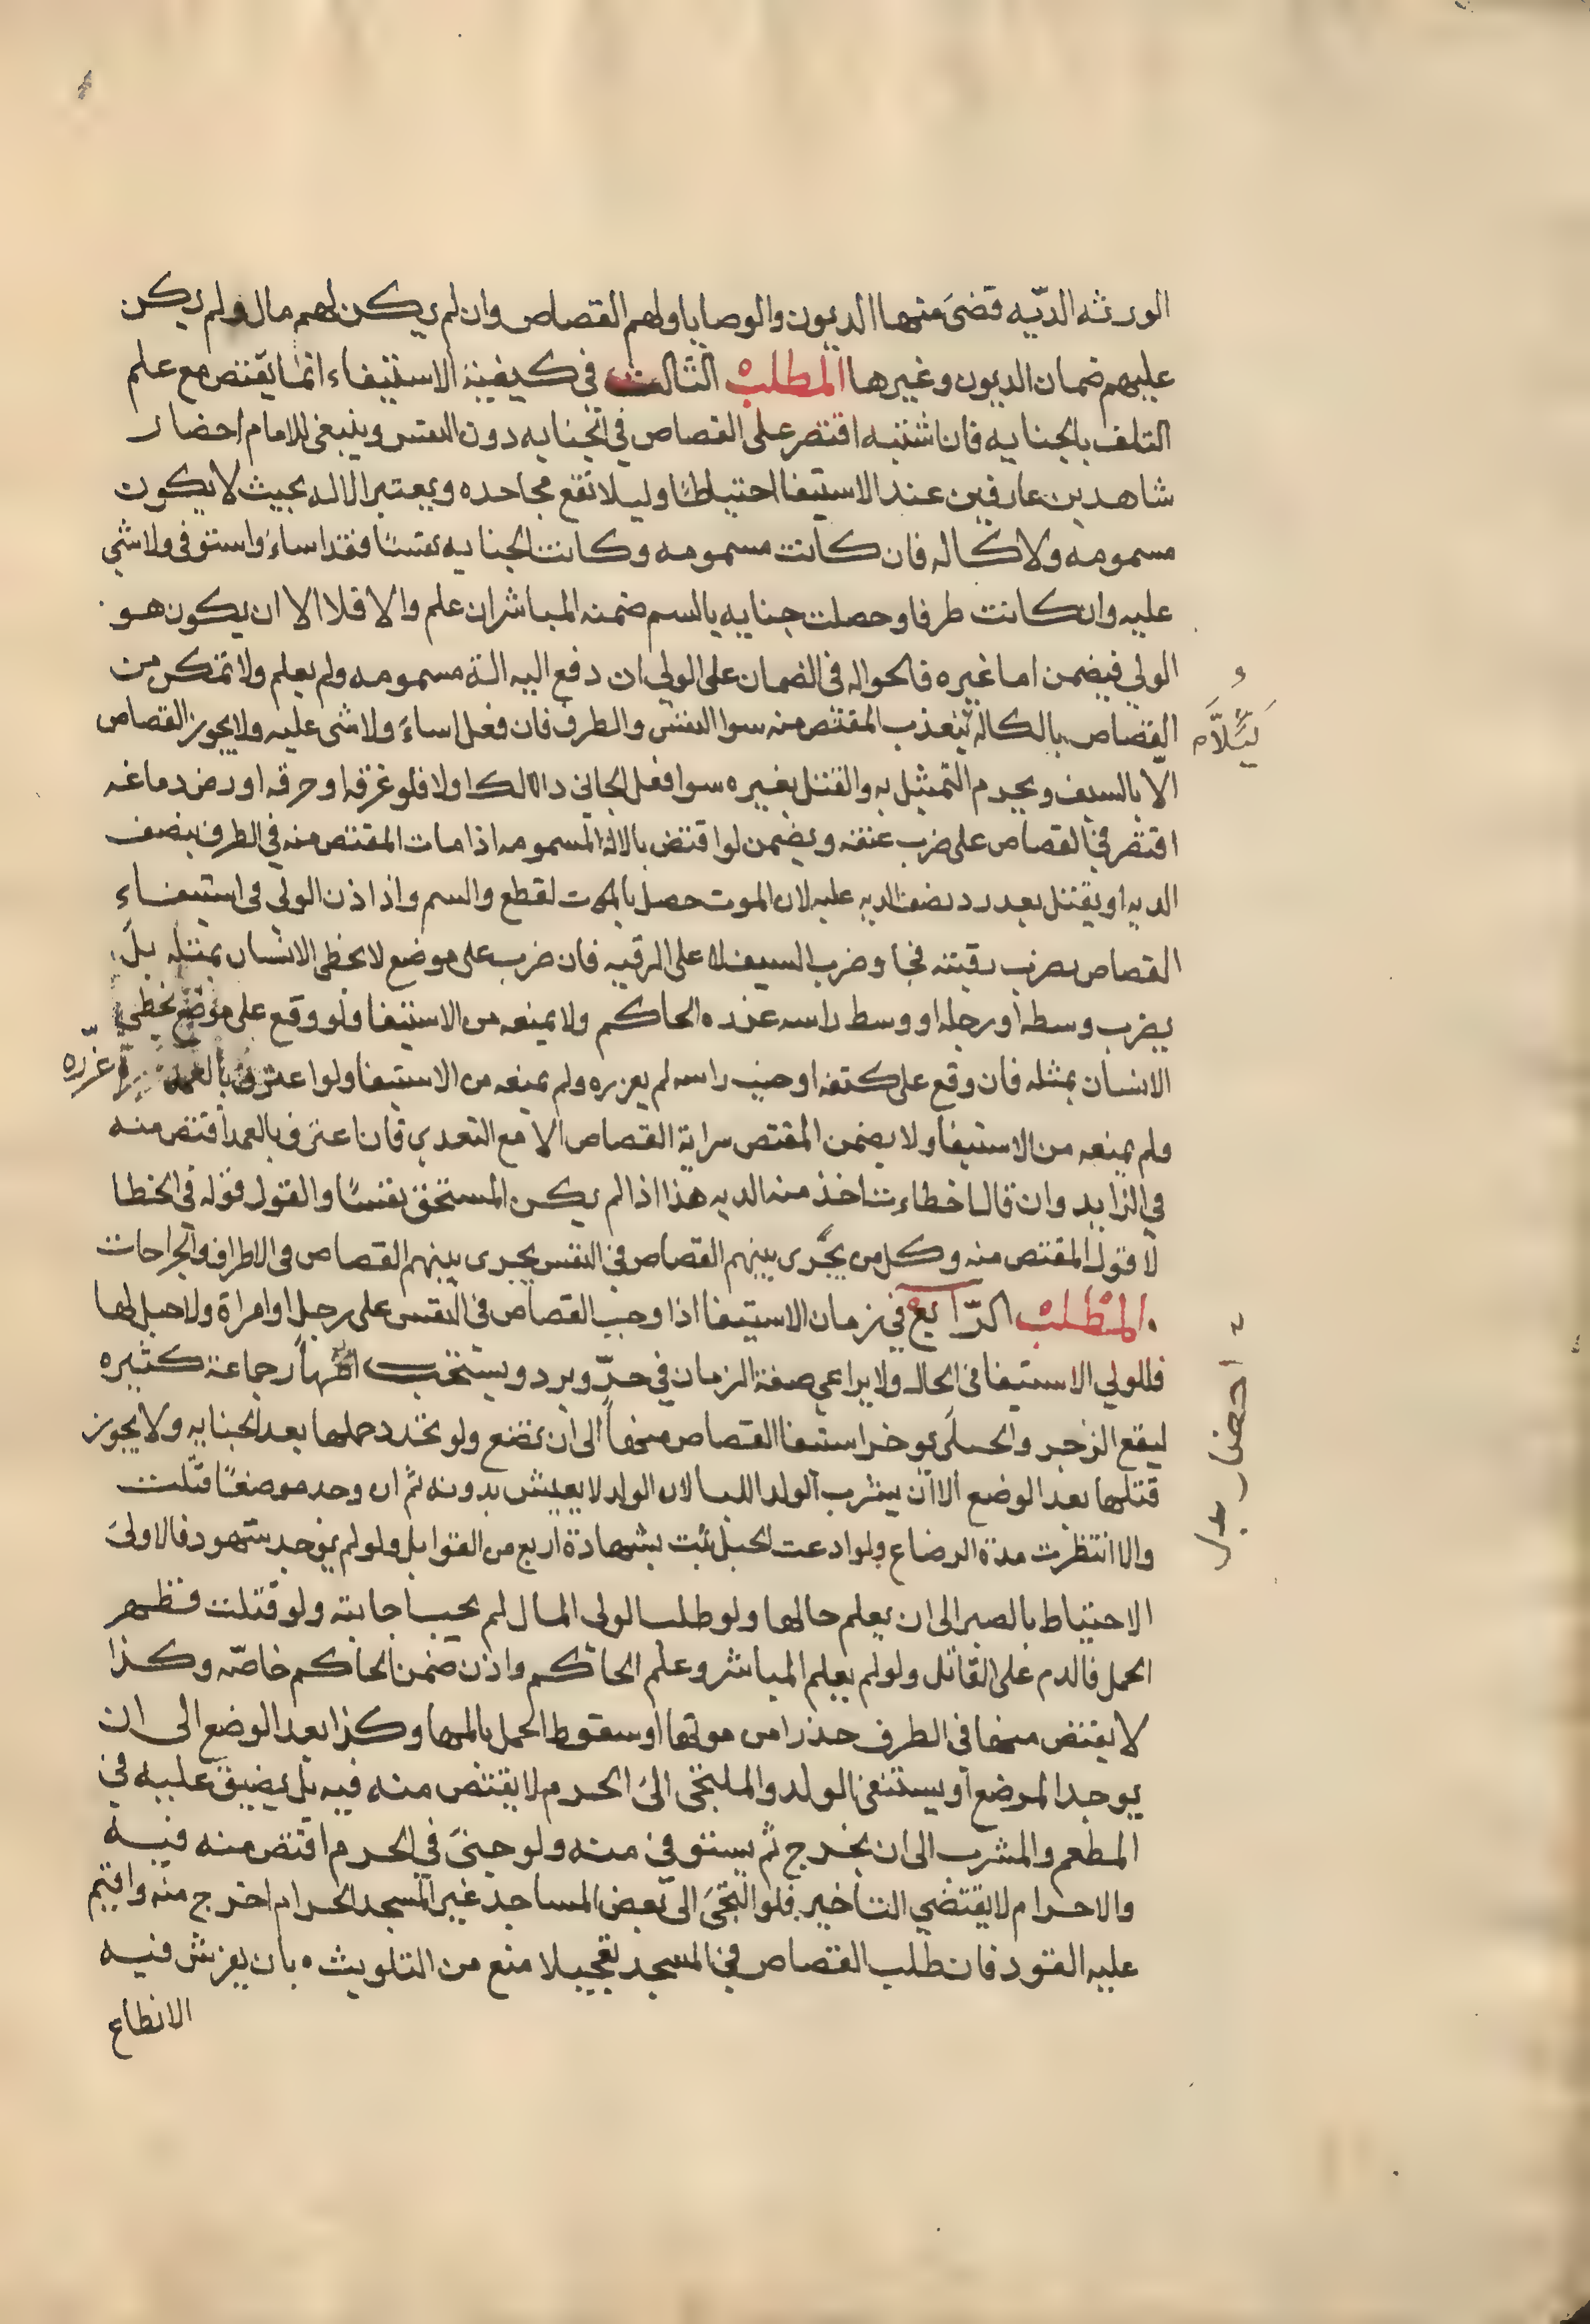 الورثه الديّه قضىَ منها الديون والوصايا ولهم القصاص وان لم يكن لهم مال ولم يكن
عليهم ضمان الديون وغيرها المطلب الثالث في كيفيّة الاستيفاء انما يقتص مع علم
التلف بالجنايه فان اشتبه اقتصر على القصاص في الجنايه دون النفس وينبغي للامام احضار
شاهدين عارفين عند الاستيفا احتياطًا وليلا تقع مجاحده ويعتبر الاله بحيث لا يكون
مسمومه ولا كاله فان كانت مسمومه وكانت الجنايه نفسًا فقد اساءَ واستوفى ولا شي
عليه وان كانت طرفا وحصلت جنايه بالسم ضمنه المباشر ان علم والا فلا الا ان يكون هو
الولي فيضمن اما غيره فالحواله في الضمان على الولي ان دفع اليه الة مسمومه ولم يعلم ولا تمكن من
القصاص بالكاله يتعذب المقتص منه سوا النفس والطرف فان فعل اساءَ ولا شي عليه ولا يجوز القصاص
ليَئلّا
الا بالسيف ويحرم التمثيل به والقتل بغيره سوا فعل الجاني ذالك اولا فلو غرقه او حرقه او رض دماغه
اقتصر في القصاص على ضرب عنقه ويضمن لو اقتص بالالة المسمومه اذا مات المقتص منه في الطرف بنصف
الديه او يقتل بعد رد نصف الديه عليه لان الموت حصل بالقطع والسم واذا اذن الولي في استيفاء
القصاص بضرب رقبته فجا وضرب السيف لا على الرقبه فان ضرب على موضع لا يخطي الانسان بمثله بل
يضرب وسطه او رجله او وسط راسه عزره الحاكم ولا يمنعه من الاستيفا ولو وقع على موضع يخطي
الانسان بمثله فان وقع على كتفه او جنب راسه لم يعزره ولم يمنعه من الاستيفا ولو اعترف بالعمد
عزّره
ولم يمنعه من الاستيفا ولا يضمن المقتص سراية القصاص الا مع التعدي فان اعترف بالعمد اقتص منه
في الزايد وان قال اخطاءت اخذ منه الديه هذا اذا لم يكن المستحق نفسًا والقول قوله في الخطا
لا قول المقتص منه وكل من يجرى بينهم القصاص في النفس يجرى بينهم القصاص في الاطراف والجراحات
المطلب الرّابع في زمان الاستيفا اذا وجب القصاص في النفس على رجل او امراة ولا حبل لها
فللولي الاستيفا في الحال ولا يراعي صفة الزمان في حرّ وبرد ويستحب جماعة كثيره
احضار بدل
ليقع الزجر والحبلَى يوخر استيفا القصاص منها الى ان تضع ولو تجدد حملها بعد الجنايه ولا يجوز
قتلها بعد الوضع الا ان يشرب الولد اللبا لان الولد لا يعيش بدونه ثم ان وجد مرضعًا قتلت
والا انتظرت مدة الرضاع ولو ادعت الحبل ثبت بشهادة اربع من القوابل ولو لم يوجد شهود فالاولىَ
الاحتياط بالصبر الى ان يعلم حالها ولو طلب الولي المال لم يجب اجابته ولو قتلت فظهر
الحمل فالدم على القاتل ولو لم يعلم المباشر وعلم الحاكم واذن ضمن الحاكم خاصّه وكذا
لا يقتص منها في الطرف حذرا من موتها او سقوط الحمل بالمها وكذا بعد الوضع الى ان
يوجد المرضع او يستغني الولد والملتجى الىَ الحرم لا يقتص منه فيه بل يضيق عليه في
المطعم والمشرب الى ان يخرج ثم يستوفى منه ولو جنىَ في الحرم اقتص منه فيه
والاحرام لا يقتضي التاخير فلو التجىَ الى بعض المساجد غير المسجد الحرام اخرج منه واقيم
عليه القود فان طلب القصاص في المسجد تعجيلا منع من التلويث بان يفرش فيه
الانطاع